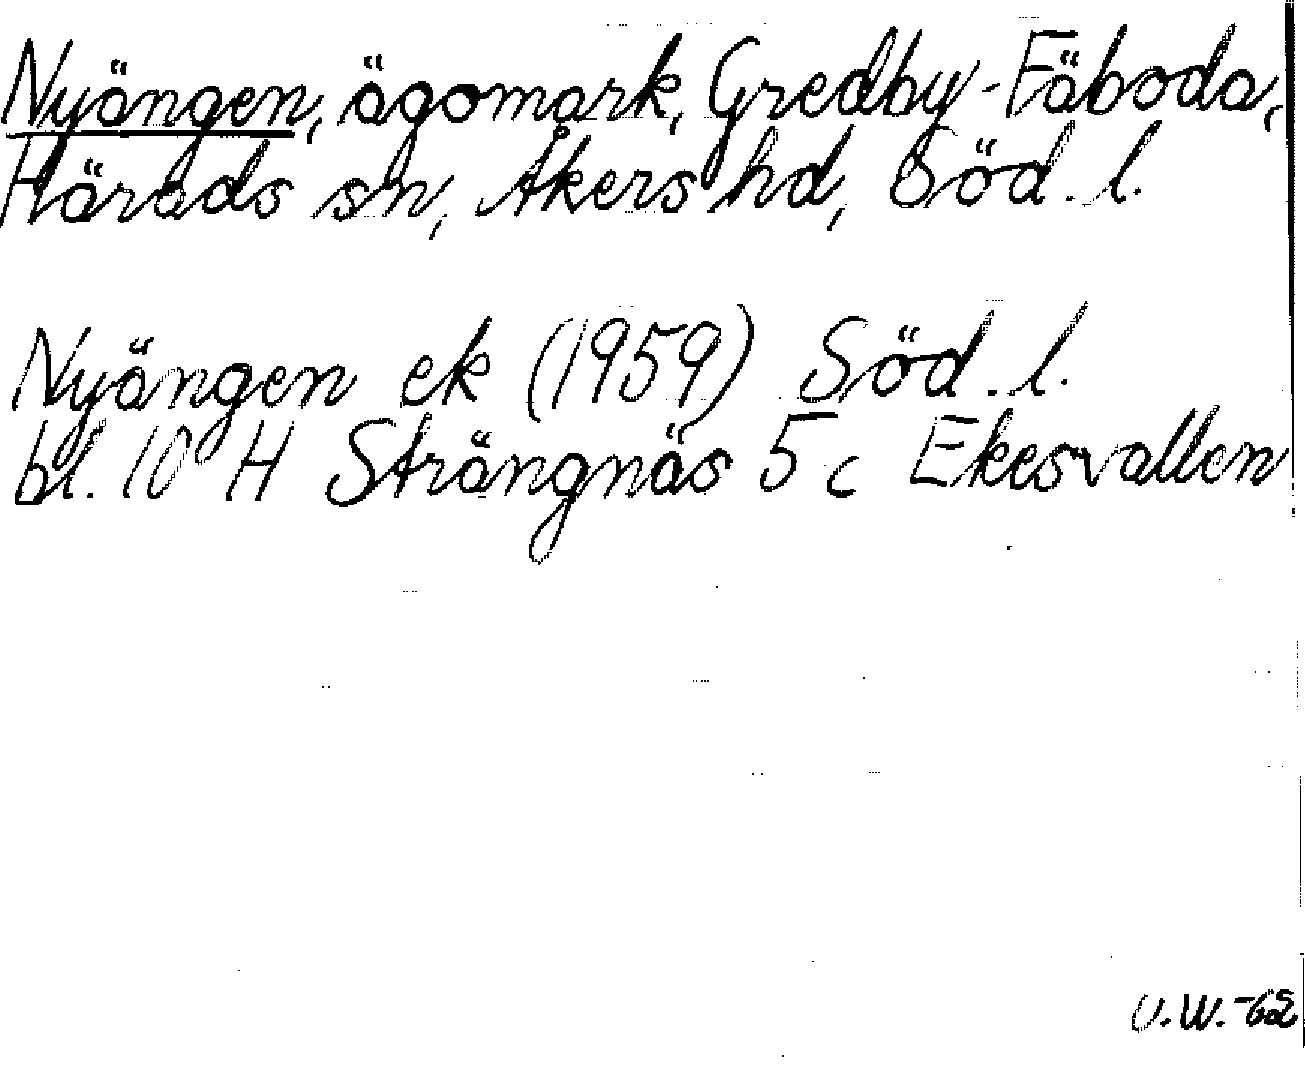 Nyängen, ägomark, Gredby-Fäboda,
Härads sn, Åkers hd, Söd. l.
Nyängen ek (1959) Söd. l.
bl. 10 H Strängnäs 5 c Ekesvallen
U.W. -62